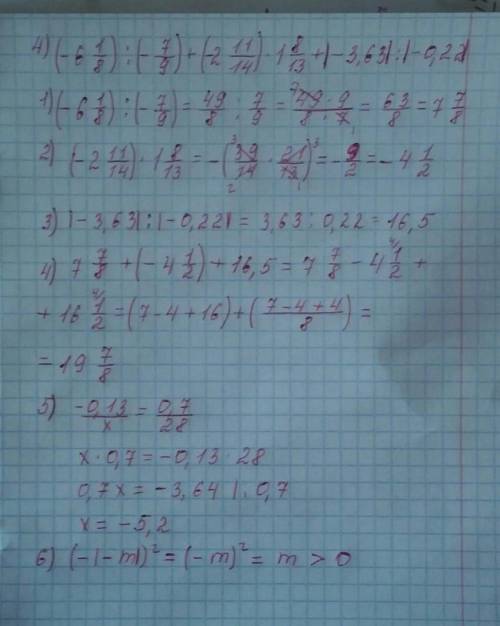 4) (-6 1/8) : (-7/9) + (-2 11/14) · 1 8/13 + |-3,63| : |-0,22|
1) (-6 1/8) : (-7/9) = 49/8 : 7/9 = 49 · 9 / 8 · 7 = 63/8 = 7 7/8
2) (-2 11/14) · 1 8/13 = -(39/14 · 21/13) = -9/2 = -4 1/2
3) |-3,63| : |-0,22| = 3,63 : 0,22 = 16,5
4) 7 7/8 + (-4 1/2) + 16,5 = 7 7/8 - 4 1/2 +
+ 16 1/2 = (7-4+16) + (7-4+4 / 8) =
= 19 7/8
5) -0,13/x = 0,7/28
x · 0,7 = -0,13 · 28
0,7x = -3,64 | : 0,7
x = -5,2
6) (-|-m|)² = (-m)² = m > 0